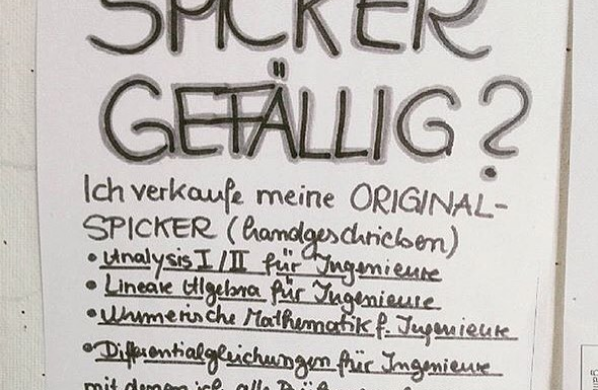 SPICKER
GEFÄLLIG?
Ich verkaufe meine ORIGINAL-
SPICKER (handgeschrieben)
• Analysis I/II für Ingenieure
• Lineare Algebra für Ingenieure
• Numerische Mathematik f. Ingenieure
• Differentialgleichungen für Ingenieure
mit denen ich alle